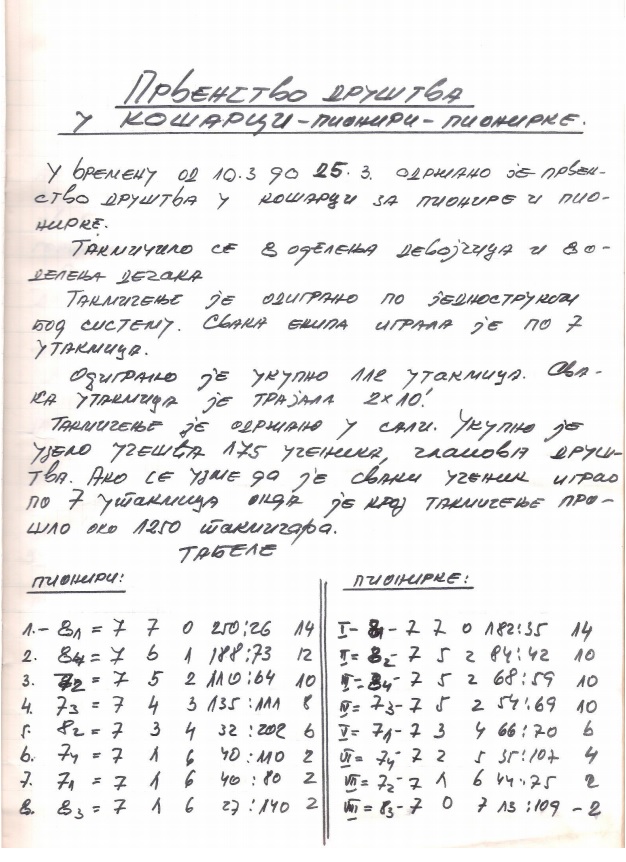 Првенство друштва
у кошарци-пионири-пионирке.
У времену од 10.3 до 25.3. одржано је првен-
ство друштва у кошарци за пионире и пио-
нирке.
Такмичило се 8 оделења девојчица и 8 о-
делења дечака
Такмичење је одиграно по једноструком
бод систему. Свака екипа играла је по 7
утакмица.
Одиграно је укупно 112 утакмица. Сва-
ка утакмица је трајала 2x10'.
Такмичење је одржано у сали. Укупно је
узело учешћа 175 ученика, чланова друш-
тва. Ако се узме да је сваки ученик играо
по 7 утакмица онда је кроз такмичење про-
шло око 1250 такмичара.
Табеле
пионири:
1.- 8₁ = 7 7 0 250:26 14
2. 8₄ = 7 6 1 188:73 12
3. 7₂ = 7 5 2 110:64 10
4. 7₃ = 7 4 3 135:111 8
5. 8₂ = 7 3 4 32:202 6
6. 7₄ = 7 1 6 40:110 2
7. 7₁ = 7 1 6 40:80 2
8. 8₃ = 7 1 6 27:140 2
пионирке:
I- 8₁ - 7 7 0 182:35 14
II= 8₂ - 7 5 2 84:42 10
III= 8₄ - 7 5 2 68:59 10
IV= 7₃ - 7 5 2 54:69 10
V= 7₁ - 7 3 4 66:70 6
VI= 7₄ - 7 2 5 35:107 4
VII= 7₂ - 7 1 6 44:75 2
VIII= 8₃ - 7 0 7 13:109 -2